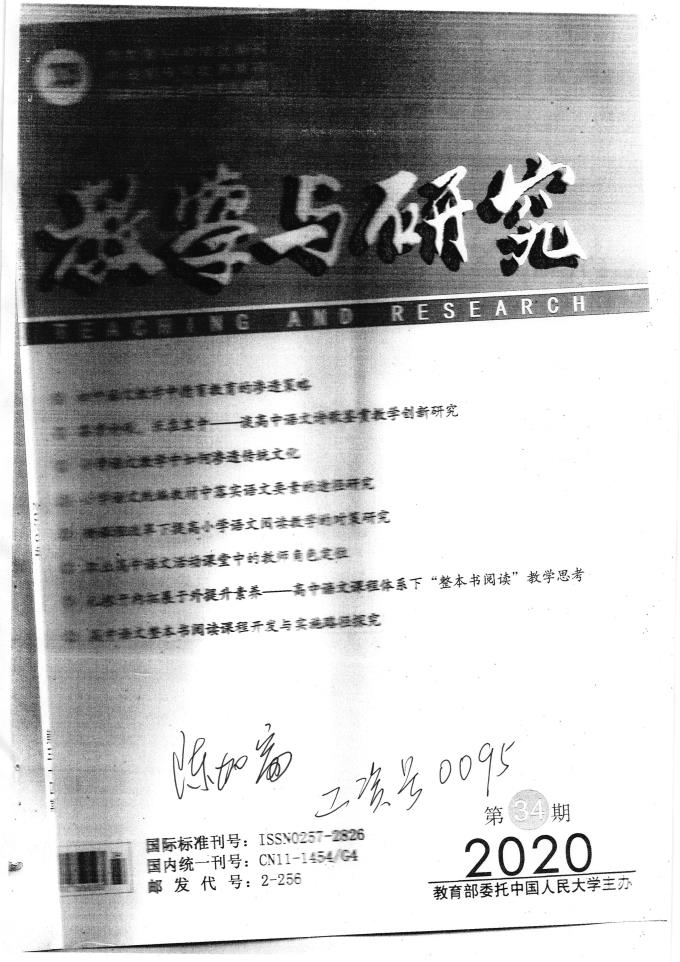 教学与研究
TEACHING AND RESEARCH
谈高中语文诗歌鉴赏教学创新研究
小学语文教学中如何渗透传统文化
小学语文统编教材中落实语文要素的途径研究
新课程改革下提高小学语文阅读教学的对策研究
高中语文活动课堂中的教师角色定位
扎根于内拓展于外提升素养——高中语文课程体系下“整本书阅读”教学思考
高中语文整本书阅读课程开发与实施路径探究
陈加富
工资号0095
第34期
国际标准刊号：ISSN0257-2826
国内统一刊号：CN11-1454/G4
邮发代号：2-256
2020
教育部委托中国人民大学主办